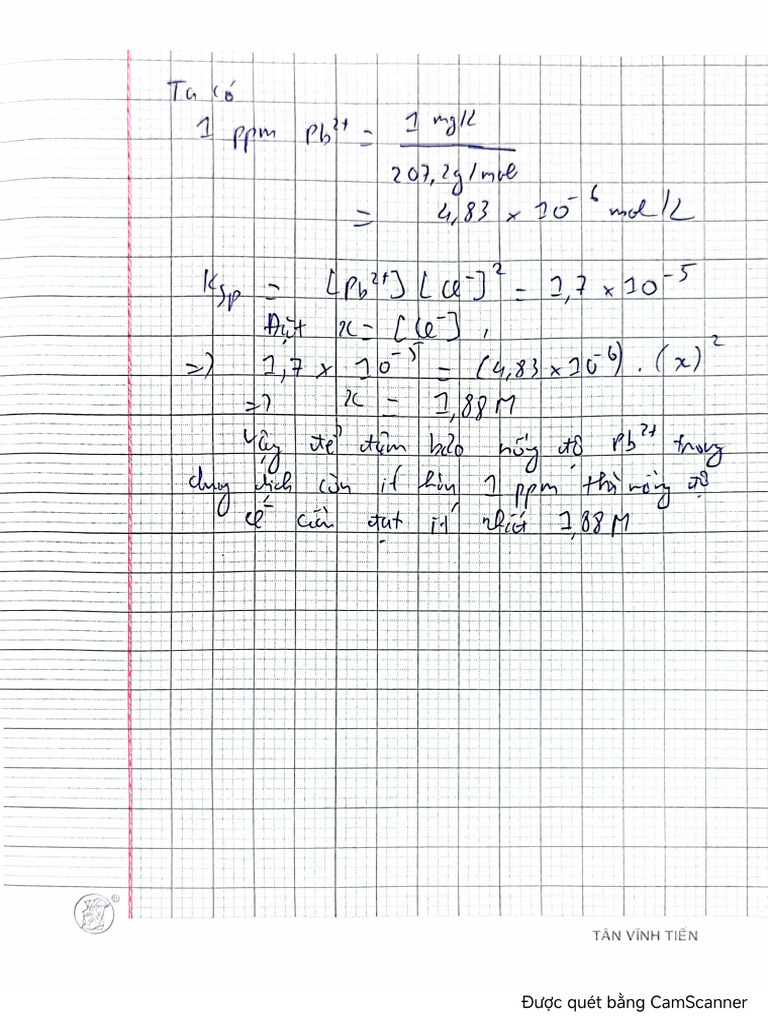 Ta có
1 ppm Pb²⁺ = 1 mg/L
207,2g/mol
= 4,83 × 10⁻⁶ mol/L
Ksp = [Pb²⁺][Cl⁻]² = 1,7 × 10⁻⁵
Đặt x = [Cl⁻],
=> 1,7 × 10⁻⁵ = (4,83 × 10⁻⁶) . (x)²
=> x = 1,88M
Vậy để đảm bảo nồng độ Pb²⁺ trong
dung dịch còn ít hơn 1 ppm thì nồng độ
Cl⁻ cần đạt ít nhất 1,88M
TÂN VĨNH TIẾN
Được quét bằng CamScanner